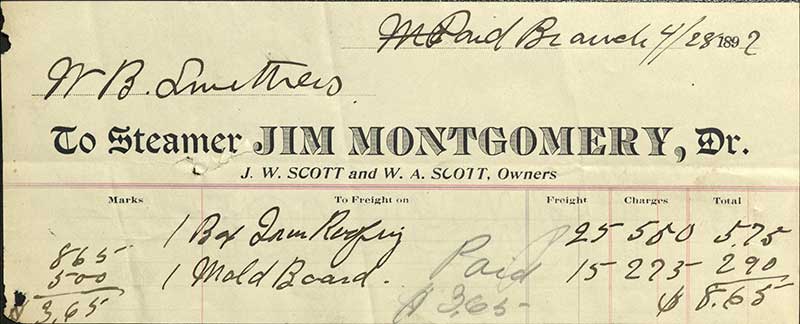 McPaid Branch 4/28 1897
W B. Smithers
To Steamer JIM MONTGOMERY, Dr.
J. W. SCOTT and W. A. SCOTT, Owners
Marks To Freight on Freight Charges Total
1 Box Iron Roofing 25 550 5.75
865 1 Mold Board. Paid 15 275 290
500 $3.65 $8.65
$3.65